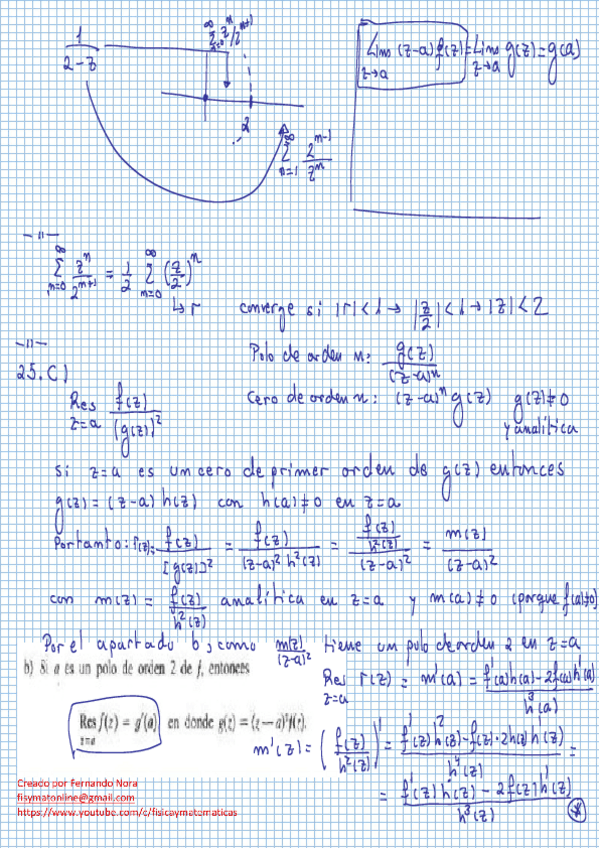 1/(2-z)
∞ Σ n=0 z^n/2^(n+1)
Lim z→a (z-a) f(z) = Lim z→a g(z) = g(a)
2
∞ Σ n=1 2^(n-1)/z^n
-11-
∞ Σ n=0 z^n/2^(n+1) = 1/2 ∞ Σ n=0 (z/2)^n
↳ r converge si |r|<1 → |z/2|<1 → |z|<2
-11-
Polo de orden n: g(z)/(z-a)^n
25.C)
Res z=a f(z)/(g(z))^2
Cero de orden n: (z-a)^n g(z) g(z)≠0
y analítica
si z=a es un cero de primer orden de g(z) entonces
g(z) = (z-a) h(z) con h(a)≠0 en z=a
Por tanto: r(z) = f(z)/[g(z)]^2 = f(z)/((z-a)^2 h^2(z)) = (f(z)/h^2(z))/(z-a)^2 = m(z)/(z-a)^2
con m(z) = f(z)/h^2(z) analítica en z=a y m(a)≠0 (porque f(a)≠0)
Por el apartado b, como m(z)/(z-a)^2 tiene un polo de orden 2 en z=a
b) Si a es un polo de orden 2 de f, entonces
Res z=a r(z) = m'(a) = (f'(a)h(a) - 2f(a)h'(a))/h^3(a)
Res z=a f(z) = g'(a) en donde g(z) = (z-a)^2 f(z).
m'(z) = (f(z)/h^2(z))' = (f'(z)h^2(z) - f(z)·2h(z)h'(z))/h^4(z) =
= (f'(z)h(z) - 2f(z)h'(z))/h^3(z)
Creado por Fernando Nora
fisymatonline@gmail.com
https://www.youtube.com/c/fisicaymatematicas